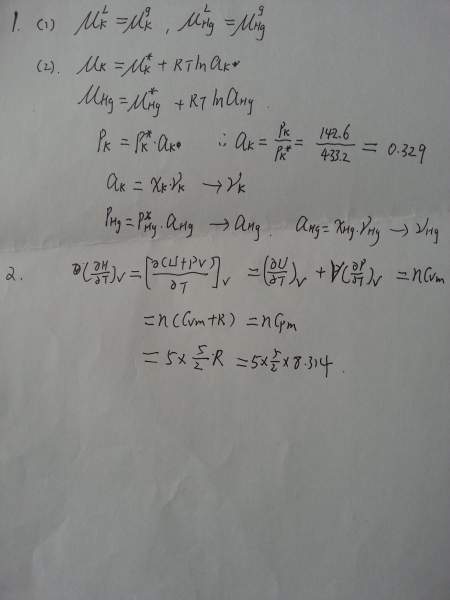 1. (1) μ_K^L = μ_K^g , μ_Hg^L = μ_Hg^g
(2). μ_K = μ_K^* + RT ln a_K.
μ_Hg = μ_Hg^* + RT ln a_Hg.
P_K = P_K^*·a_K. ∴ a_K = P_K/P_K^* = 142.6/433.2 = 0.329
a_K = x_K·γ_K → γ_K
P_Hg = P_Hg^*·a_Hg → a_Hg. a_Hg = x_Hg·γ_Hg → γ_Hg
2. (∂H/∂T)_V = [∂(U+PV)/∂T]_V = (∂U/∂T)_V + V(∂P/∂T)_V = nCvm
= n(Cvm+R) = nCpm
= 5×5/2·R = 5×5/2×8.314.